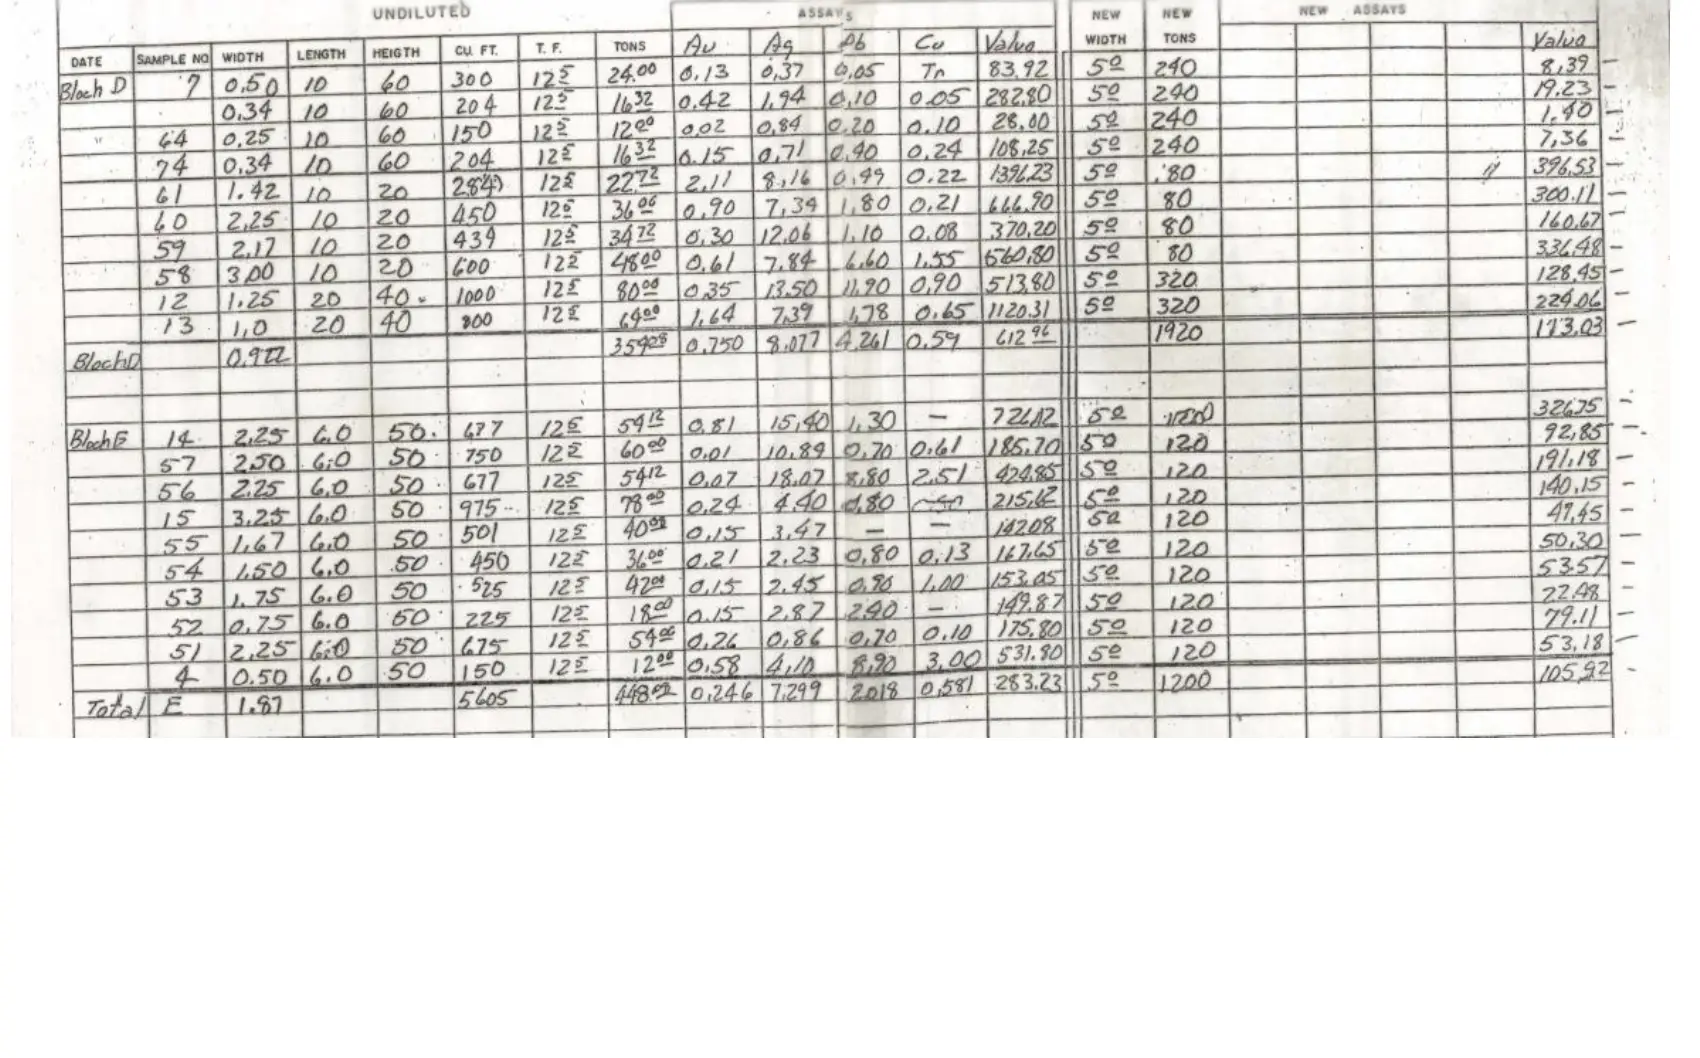 UNDILUTED ASSAYS NEW NEW NEW ASSAYS
DATE SAMPLE NO WIDTH LENGTH HEIGTH CU. FT. T. F. TONS Au Ag Pb Cu Value WIDTH TONS Value
Block D 7 0.50 10 60 300 12 5 24.00 0.13 0.37 0.05 Tr 83.92 5 0 240 8.39
0.34 10 60 204 12 5 16 32 0.42 1.94 0.10 0.05 282.80 5 0 240 19.23
" 64 0.25 10 60 150 12 5 12 00 0.02 0.84 0.20 0.10 28.00 5 0 240 1.40
74 0.34 10 60 204 12 5 16 32 0.15 0.71 0.40 0.24 108.25 5 0 240 7.36
61 1.42 10 20 284 12 5 22 72 2.11 8.16 0.49 0.22 1396.23 5 0 80 396.53
60 2.25 10 20 450 12 5 36 06 0.90 7.34 1.80 0.21 666.90 5 0 80 300.11
59 2.17 10 20 434 12 5 34 72 0.30 12.06 1.10 0.08 370.20 5 0 80 160.67
58 3.00 10 20 600 12 5 48 00 0.61 7.84 6.60 1.55 560.80 5 0 80 336.48
12 1.25 20 40 1000 12 5 80 00 0.35 13.50 11.90 0.90 513.80 5 0 320 128.45
13 1.0 20 40 800 12 5 64 00 1.64 7.39 1.78 0.65 1120.31 5 0 320 224.06
Block D 354 08 0.750 8.077 4.261 0.59 612 96 1920 113.03
Block E 14 2.25 6.0 50 677 12 5 54 12 0.81 15.40 1.30 — 5 0 326.75
57 2.50 6.0 50 750 12 5 60 00 0.01 10.89 0.70 0.61 185.70 5 0 120 92.85
56 2.25 6.0 50 677 12 5 54 12 0.07 18.07 8.80 2.51 424.85 5 0 120 191.18
15 3.25 6.0 50 975 12 5 78 00 0.24 4.40 0.80 215.62 5 0 120 140.15
55 1.67 6.0 50 501 12 5 40 0.15 3.47 — — 142.08 5 0 120 47.45
54 1.50 6.0 50 450 12 5 36.00 0.21 2.23 0.80 0.13 167.65 5 0 120 50.30
53 1.75 6.0 50 525 12 5 42 00 0.15 2.45 0.90 1.00 153.05 5 0 120 53.57
52 0.75 6.0 50 225 12 5 18 00 0.15 2.87 2.40 — 149.87 5 0 120 22.48
51 2.25 6.0 50 675 12 5 54 00 0.26 0.86 0.70 0.10 175.80 5 0 120 79.11
4 0.50 6.0 50 150 12 5 12 00 0.58 4.10 8.90 3.00 531.80 5 0 120 53.18
Total E 1.87 5605 0.246 7.299 2.018 0.581 283.23 5 0 1200 105.92